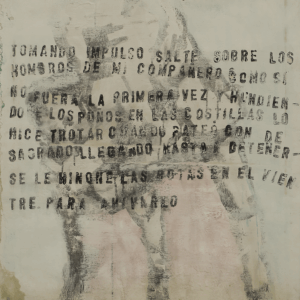 TOMANDO IMPULSO SALTE SOBRE LOS
HOMBROS DE MI COMPAÑERO COMO SI
NO FUERA LA PRIMERA VEZ HUNDIEN
DOLE LOS PUÑOS EN LAS COSTILLAS LO
HICE TROTAR CUANDO PATEO CON DE
SAGRADO LLEGANDO HASTA DETENER-
SE LE HINQUE LAS BOTAS EN EL VIEN
TRE PARA AVIVARLO